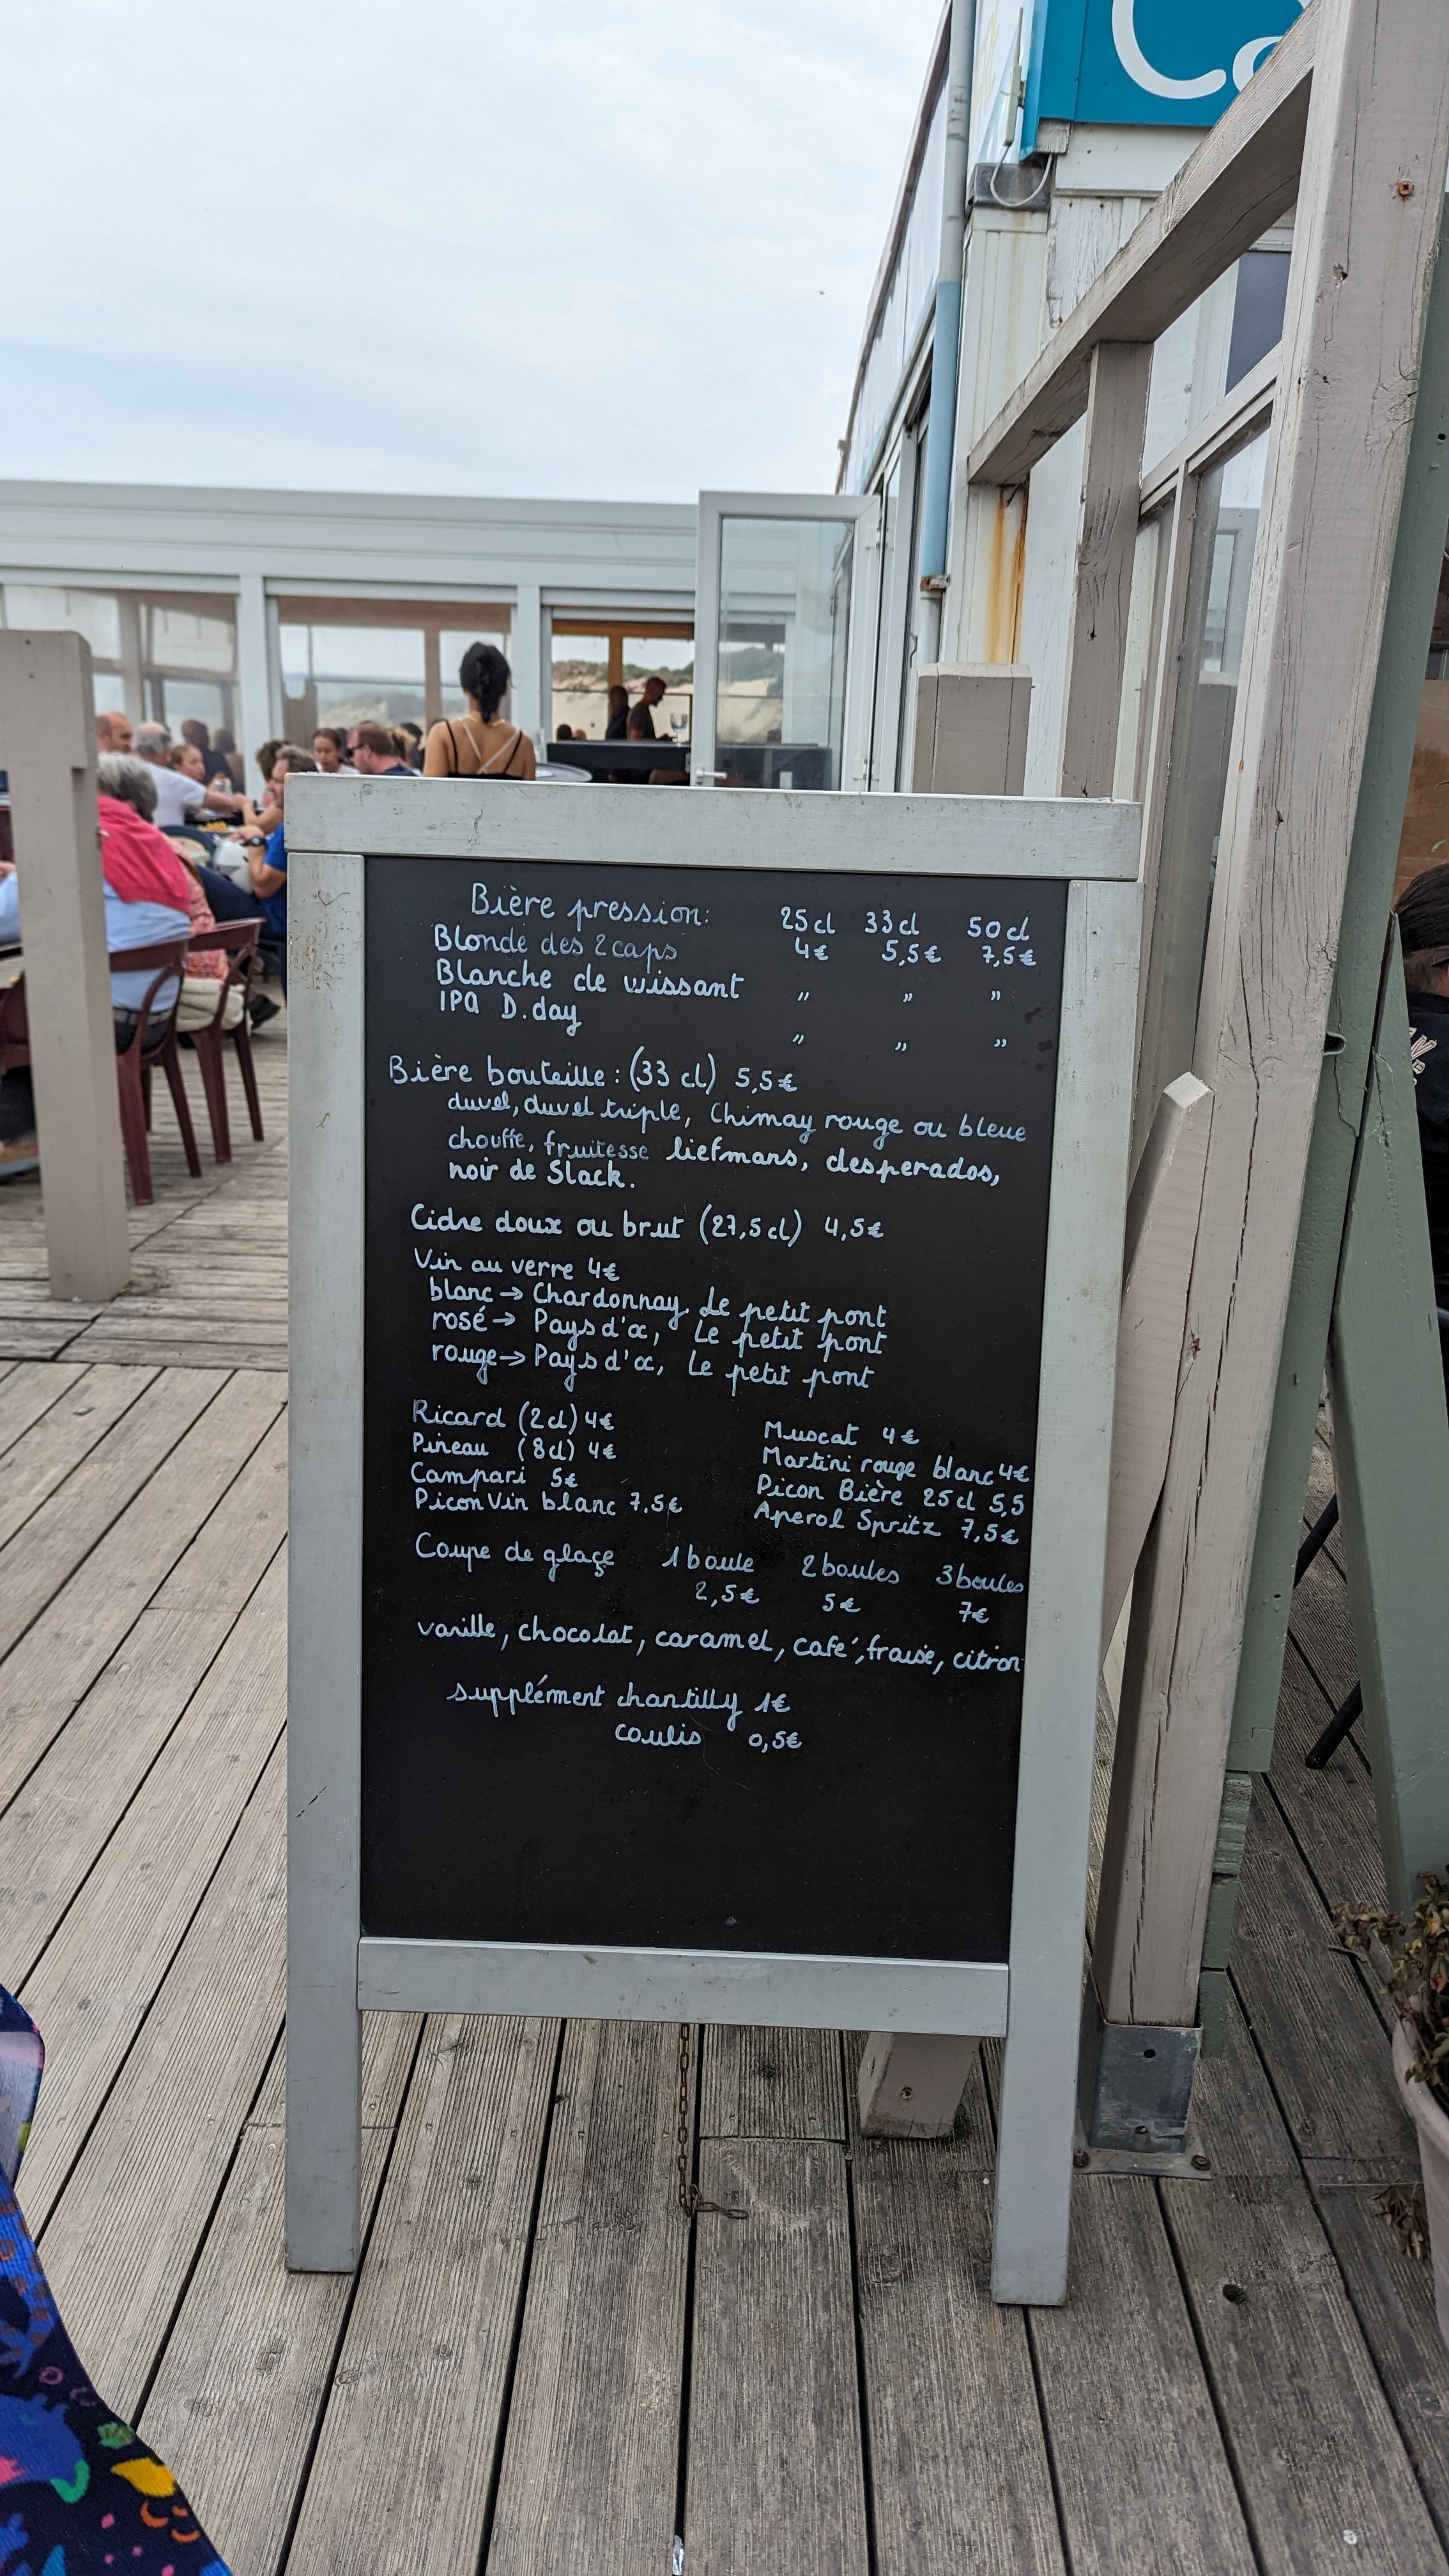 Co
Bière pression: 25cl 33cl 50cl
Blonde des 2caps 4€ 5,5€ 7,5€
Blanche de wissant " " "
IPA D.day " " "
Bière bouteille : (33 cl) 5,5€
duvel, duvel triple, Chimay rouge ou bleue
chouffe, fruitesse liefmans, desperados,
noir de Slack.
Cidre doux ou brut (27,5cl) 4,5€
Vin au verre 4€
blanc → Chardonnay, Le petit pont
rosé → Pays d'oc, Le petit pont
rouge → Pays d'oc, Le petit pont
Ricard (2cl) 4€
Pineau (8cl) 4€
Campari 5€
Picon Vin blanc 7,5€
Muscat 4€
Martini rouge blanc 4€
Picon Bière 25cl 5,5
Aperol Spritz 7,5€
Coupe de glaçe 1 boule 2 boules 3 boules
2,5€ 5€ 7€
vanille, chocolat, caramel, café, fraise, citron
supplément chantilly 1€
coulis 0,5€